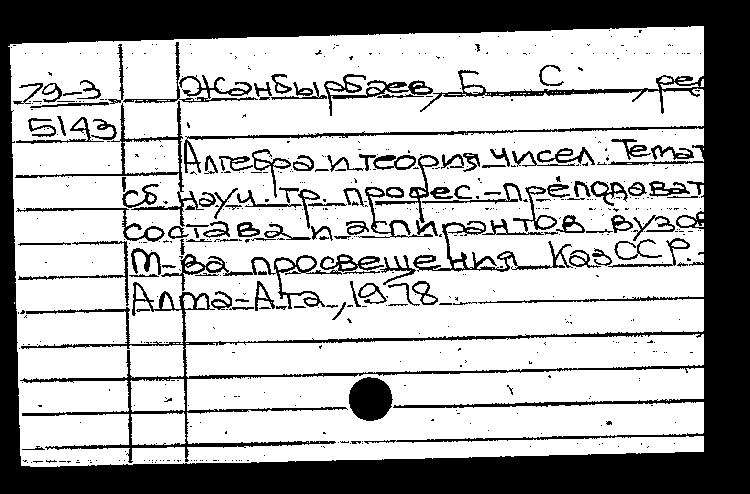 79-3 Жанбырбаев, Б С , ред
5143
Алгебра и теория чисел. Темат
сб. науч. тр. профес.-преподават
состава и аспирантов вузов
М-ва просвещения КазССР.-
Алма-Ата, 1978.